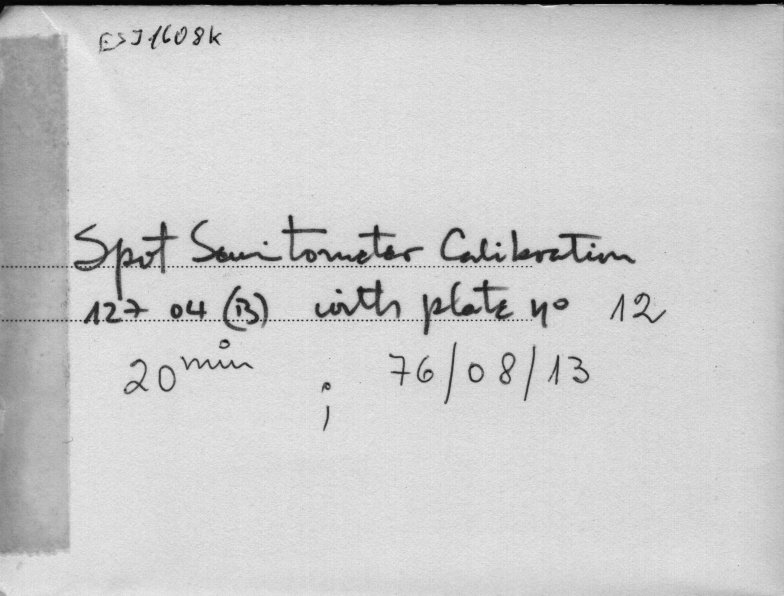 ESJ1608k
Spot Sensitometer Calibration
127 04 (B) with plate no 12
20 min ; 76/08/13